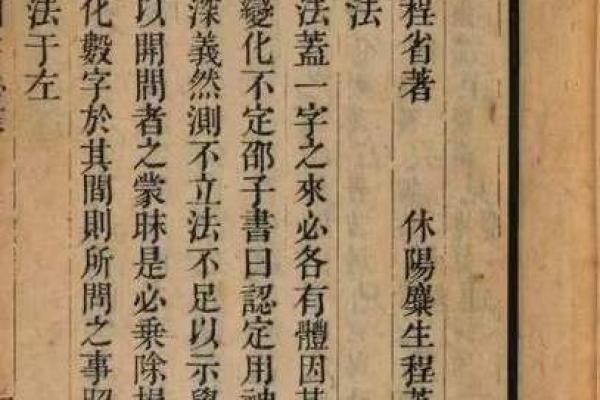 程省著 休陽麋生程
法
法蓋一字之來必各有體因其
變化不定邵子書曰認定用神
深義然測不立法不足以示學
以開問者之蒙昧是必乘除損
化數字於其間則所問之事照
法于左